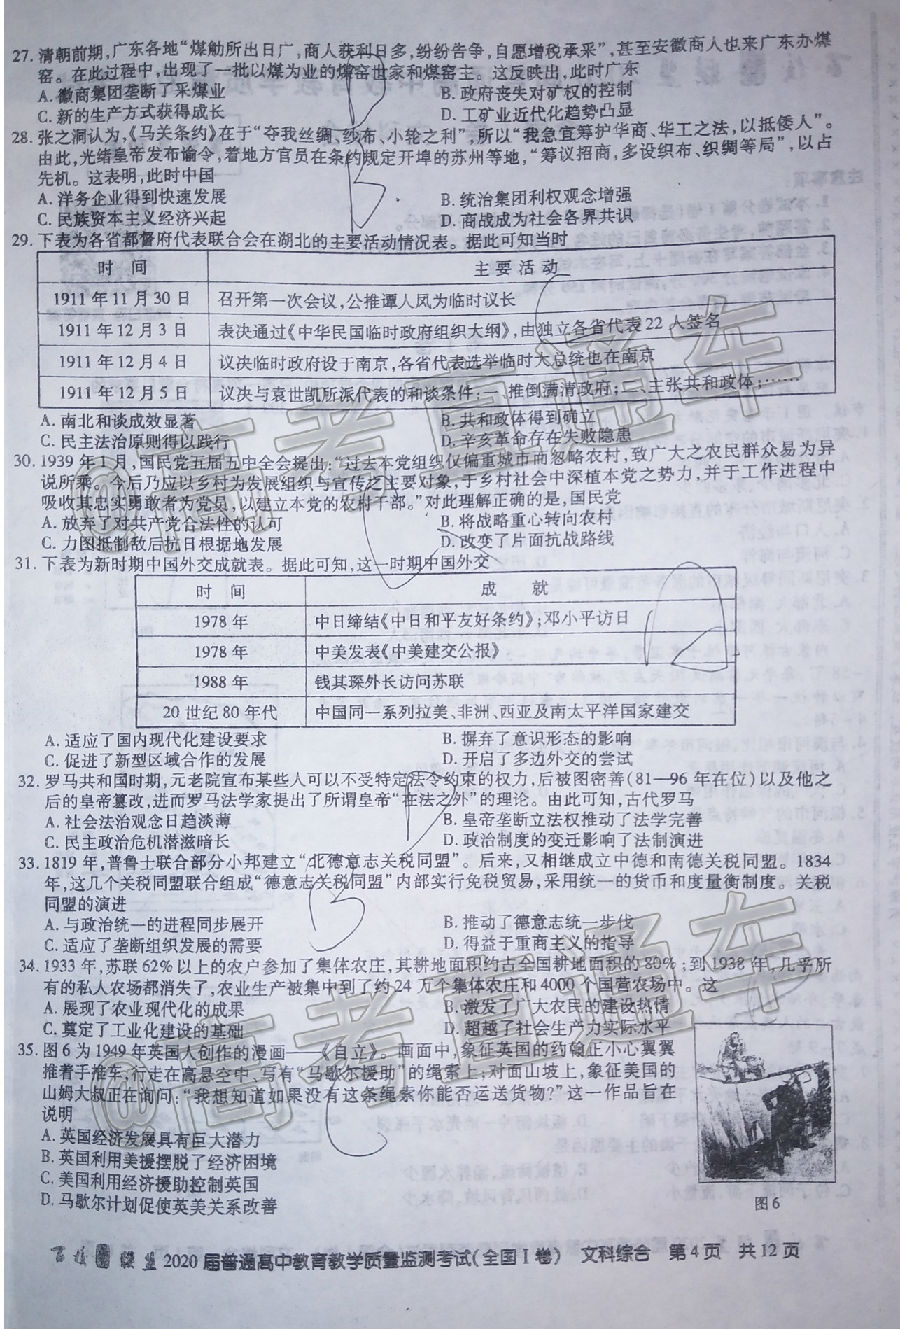 27. 清朝前期,广东各地“煤舫所出日广,商人获利日多,纷纷告争,自愿增税承采”,甚至安徽商人也来广东办煤
窑。在此过程中,出现了一批以煤为业的煤窑世家和煤窑主。这反映出,此时广东
A. 徽商集团垄断了采煤业 B. 政府丧失对矿权的控制
C. 新的生产方式获得成长 D. 工矿业近代化趋势凸显
28. 张之洞认为,《马关条约》在于“夺我丝绸、纱布、小轮之利”,所以“我急宜筹护华商、华工之法,以抵倭人”。
由此,光绪皇帝发布谕令,着地方官员在条约规定开埠的苏州等地,“筹议招商,多设织布、织绸等局”,以占
先机。这表明,此时中国
A. 洋务企业得到快速发展 B. 统治集团利权观念增强
C. 民族资本主义经济兴起 D. 商战成为社会各界共识
29. 下表为各省都督府代表联合会在湖北的主要活动情况表。据此可知当时
时 间 主要活动
1911 年 11 月 30 日 召开第一次会议,公推谭人凤为临时议长
1911 年 12 月 3 日 表决通过《中华民国临时政府组织大纲》,由独立各省代表 22 人签名
1911 年 12 月 4 日 议决临时政府设于南京,各省代表选举临时大总统也在南京
1911 年 12 月 5 日 议决与袁世凯所派代表的和谈条件:一、推倒满清政府;二、主张共和政体;……
A. 南北和谈成效显著 B. 共和政体得到确立
C. 民主法治原则得以践行 D. 辛亥革命存在失败隐患
30. 1939 年 1 月,国民党五届五中全会提出:“过去本党组织仅偏重城市而忽略农村,致广大之农民群众易为异
说所乘。今后乃应以乡村为发展组织与宣传之主要对象,于乡村社会中深植本党之势力,并于工作进程中
吸收其忠实勇敢者为党员,以建立本党的农村干部。”对此理解正确的是,国民党
A. 放弃了对共产党合法性的认可 B. 将战略重心转向农村
C. 力图抵制敌后抗日根据地发展 D. 改变了片面抗战路线
31. 下表为新时期中国外交成就表。据此可知,这一时期中国外交
时 间 成 就
1978 年 中日缔结《中日和平友好条约》;邓小平访日
1978 年 中美发表《中美建交公报》
1988 年 钱其琛外长访问苏联
20 世纪 80 年代 中国同一系列拉美、非洲、西亚及南太平洋国家建交
A. 适应了国内现代化建设要求 B. 摒弃了意识形态的影响
C. 促进了新型区域合作的发展 D. 开启了多边外交的尝试
32. 罗马共和国时期,元老院宣布某些人可以不受特定法令约束的权力,后被图密善(81—96 年在位)以及他之
后的皇帝篡改,进而罗马法学家提出了所谓皇帝“在法之外”的理论。由此可知,古代罗马
A. 社会法治观念日趋淡薄 B. 皇帝垄断立法权推动了法学完善
C. 民主政治危机潜滋暗长 D. 政治制度的变迁影响了法制演进
33. 1819 年,普鲁士联合部分小邦建立“北德意志关税同盟”。后来,又相继成立中德和南德关税同盟。1834
年,这几个关税同盟联合组成“德意志关税同盟”内部实行免税贸易,采用统一的货币和度量衡制度。关税
同盟的演进
A. 与政治统一的进程同步展开 B. 推动了德意志统一步伐
C. 适应了垄断组织发展的需要 D. 得益于重商主义的指导
34. 1933 年,苏联 62% 以上的农户参加了集体农庄,其耕地面积约占全国耕地面积的 80%;到 1938 年,几乎所
有的私人农场都消失了,农业生产被集中到了约 24 万个集体农庄和 4000 个国营农场中。这
A. 展现了农业现代化的成果 B. 激发了广大农民的建设热情
C. 奠定了工业化建设的基础 D. 超越了社会生产力实际水平
35. 图 6 为 1949 年英国人创作的漫画——《自立》。画面中,象征英国的约翰正小心翼翼
推着手推车,行走在高悬空中、写有“马歇尔援助”的绳索上;对面山坡上,象征美国的
山姆大叔正在询问:“我想知道如果没有这条绳索你能否运送货物?”这一作品旨在
说明
A. 英国经济发展具有巨大潜力
B. 英国利用美援摆脱了经济困境
C. 美国利用经济援助控制英国
D. 马歇尔计划促使英美关系改善
图 6
百校联盟 2020 届普通高中教育教学质量监测考试(全国 I 卷) 文科综合 第 4 页 共 12 页
@高考直通车
@高考直通车